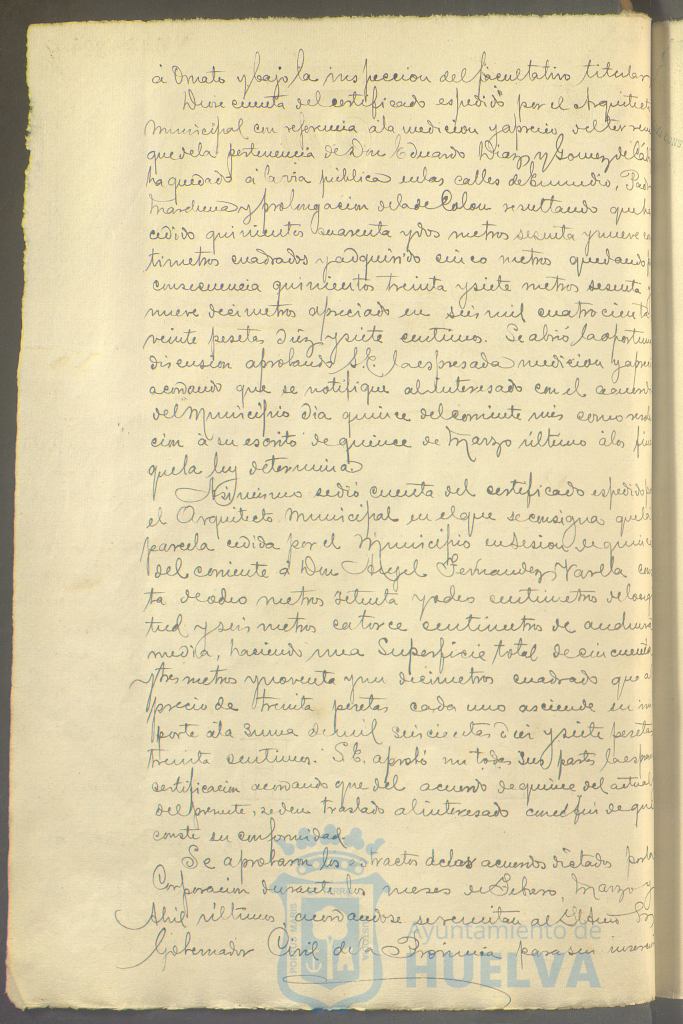 á Ornato y bajo la inspeccion del facultativo titular
Diose cuenta del certificado espedido por el Arquitect
Municipal con referencia á la medicion y aprecio del terren
que de la pertenencia de Don Eduardo Diaz y Gomez de Cádi
ha quedado á la via pública en las calles de Enmedio, Padr
Marchena y prolongacion de la de Colon resultando que ha
cedido quinientos cuarenta y dos metros sesenta y nueve ce
timetros cuadrados y adquirido cinco metros quedando
consecuencia quinientos treinta y siete metros sesenta y
nueve decimetros apreciado en seis mil cuatrocienta
veinte pesetas diez y siete centimos. Se abrió la oportun
discusion aprobando S.E. la espresada medicion y apre
acordando que se notifique al interesado con el acuerd
del Municipio dia quince del corriente mes como reso
cion á su escrito de quince de Marzo último á los fin
que la ley determina
Asi mismo se dió cuenta del certificado espedido
el Arquitecto Municipal en el que se consigna que la
parcela cedida por el Municipio en sesion de quin
del corriente á Don Angel Fernandez Varela cons
ta de ocho metros setenta y dos centimetros de longi
tud y seis metros catorce centimetros de anchura
media, haciendo una Superficie total de cincuenta
y tres metros y noventa y un decimetros cuadrado que a
precio de treinta pesetas cada uno asciende su im
porte á la suma de mil seiscientas diez y siete peseta
treinta centimos. S.E. aprobó en todas sus partes la espre
certificacion acordando que del acuerdo de quince del actual
del presente, se den traslado al interesado con el fin de que
conste su conformidad.
Se aprobaron los estractos de los acuerdos dictados por la
Corporacion durante los meses de Febrero, Marzo y
Abril últimos acordandose se remitan al Iltmo Sr
Gobernador Civil de la Provincia para su insercio
Ayuntamiento de
HUELVA